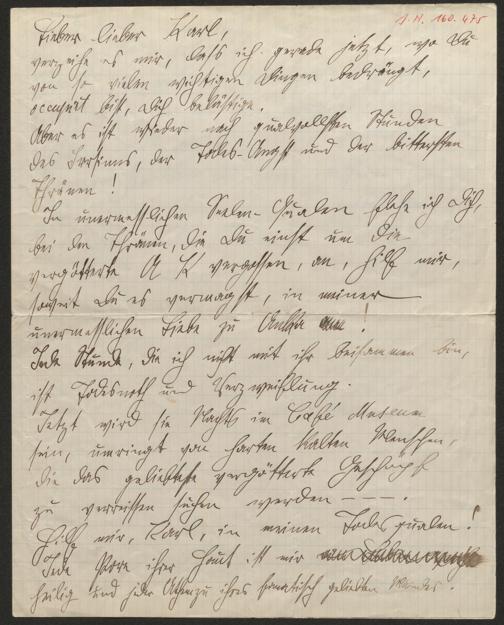 I.N. 160.475
Lieber lieber Karl,
verzeihe es mir, dass ich gerade jetzt, wo Du
von so vielen wichtigen Dingen bedrängt,
occupirt bist, Dich belästige.
Aber es ist wieder nach qualvollsten Stunden
des Irrsinns, der Todes-Angst und der bittersten
Thränen!
In unermesslichen Seelen-Qualen flehe ich Dich,
bei den Thränen, die Du einst um die
vergötterte A K vergossen, an, hilf mir,
soweit Du es vermagst, in meiner
unermesslichen Liebe zu !
Jede Stunde, die ich nicht mit ihr beisammen bin,
ist Todesnoth und Verzweiflung.
Jetzt wird sie Nachts im Café Museum
sein, umringt von harten kalten Menschen,
die das geliebteste vergötterte Geschöpf
zu verreissen suchen werden — — — .
Hilf mir, Karl, in meinen Todesqualen!
Jede Pore ihrer Haut ist mir
heilig und jeder Athemzug ihres fanatisch geliebten Mundes.